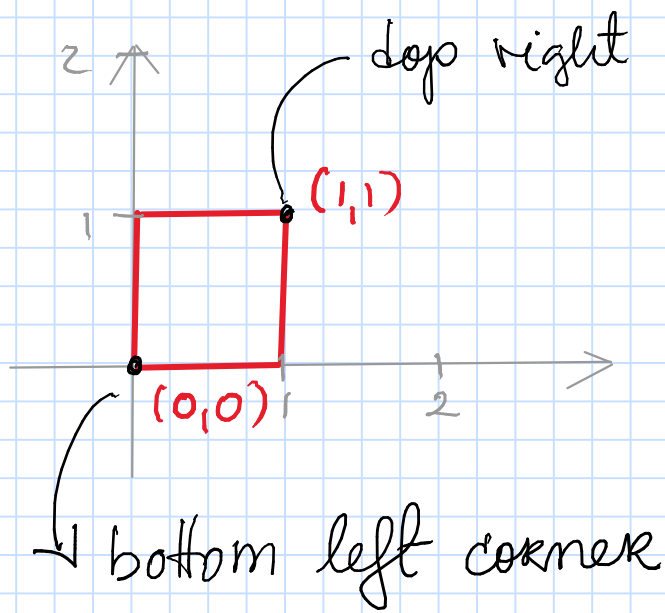 2 dop right
(1,1)
1
(0,0) 1 2
bottom left corner